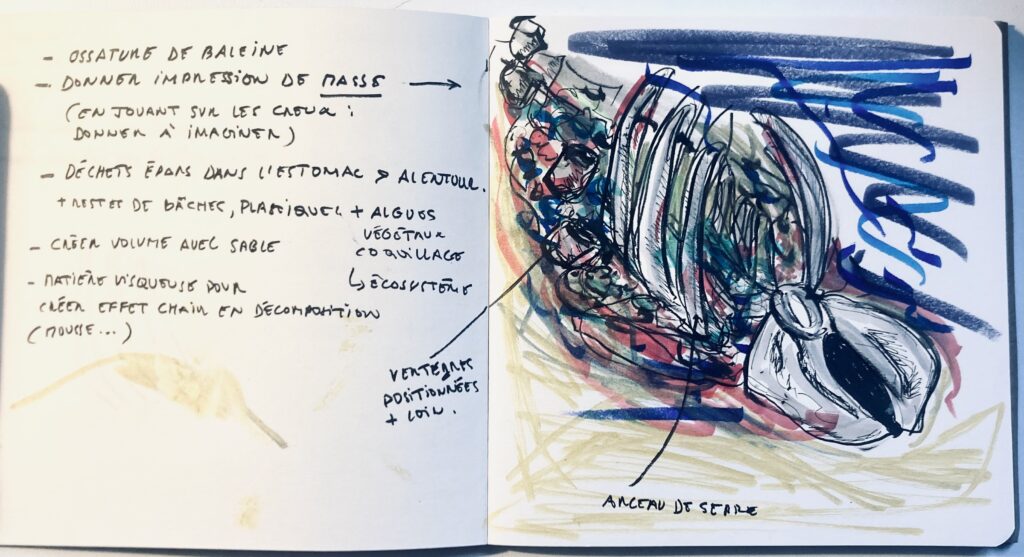 - OSSATURE DE BALEINE
- DONNER IMPRESSION DE MASSE →
(EN JOUANT SUR LES CREUX :
DONNER À IMAGINER)
- DÉCHETS ÉPARS DANS L'ESTOMAC > ALENTOUR.
+ RESTES DE BÂCHES, PLASTIQUES + ALGUES
VÉGÉTAUX
COQUILLAGE
↳ ÉCOSYSTÈME
- CRÉER VOLUME AVEC SABLE
- MATIÈRE VISQUEUSE POUR
CRÉER EFFET CHAIR EN DÉCOMPOSITION
(MOUSSE...)
VERTÈBRES
POSITIONNÉES
+ LOIN.
ARCEAU DE SERRE